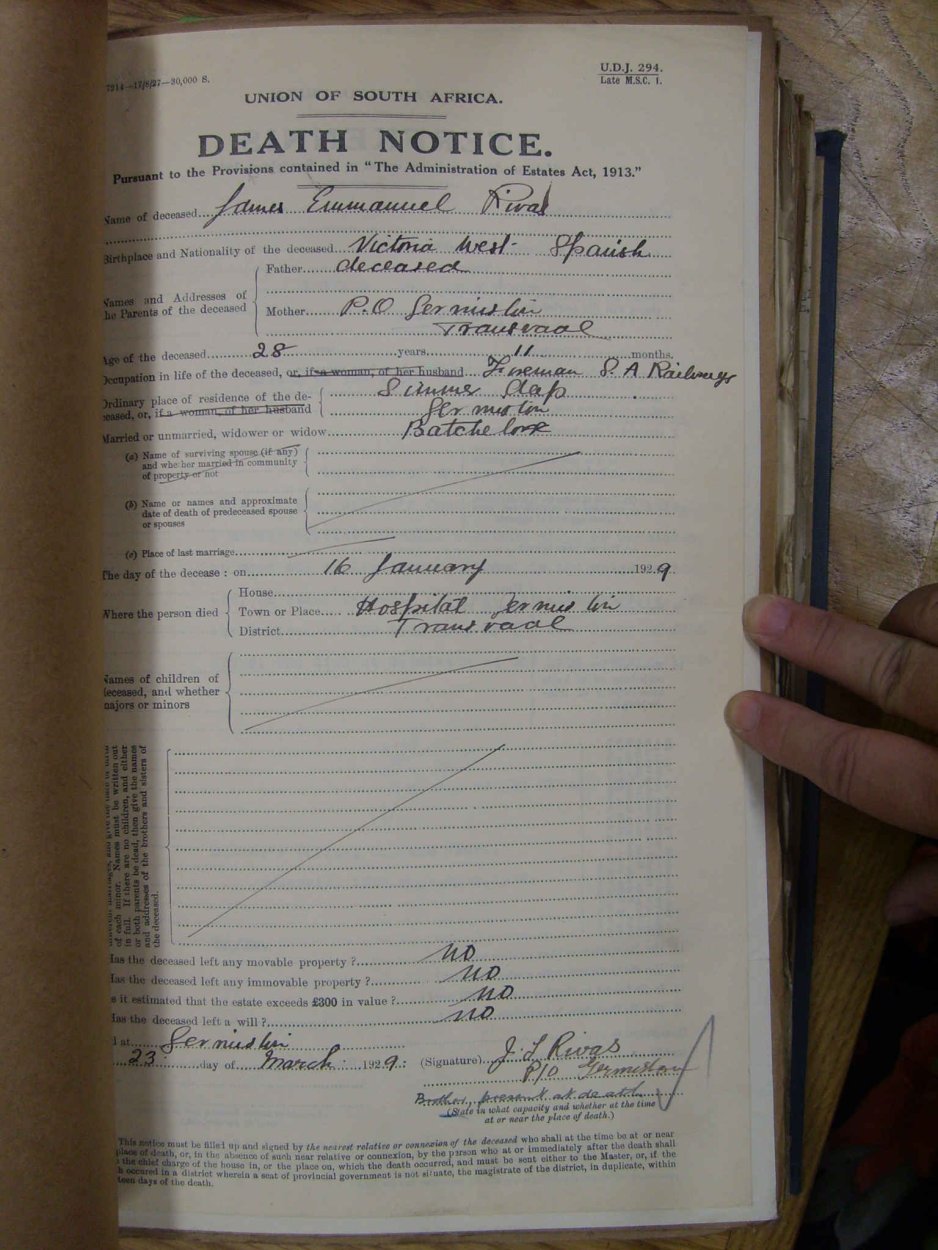 7914—17/8/27—30,000 S.
U.D.J. 294.
Late M.S.C. 1.
UNION OF SOUTH AFRICA.
DEATH NOTICE.
Pursuant to the Provisions contained in "The Administration of Estates Act, 1913."
Name of deceased James Emmanuel Rivas
Birthplace and Nationality of the deceased Victoria West Spanish
Names and Addresses of the Parents of the deceased
Father deceased
Mother P.O Germiston
Transvaal
Age of the deceased 28 years 11 months.
Occupation in life of the deceased, or, if a woman, of her husband Fireman S. A Railways
Ordinary place of residence of the deceased, or, if a woman, of her husband
Simmer
Germiston
Married or unmarried, widower or widow Batchelor
(a) Name of surviving spouse (if any)
and whether married in community
of property or not
(b) Name or names and approximate
date of death of predeceased spouse
or spouses
(c) Place of last marriage
The day of the decease : on 16 January 1929
Where the person died
House
Town or Place Hospital Germiston
District Transvaal
Names of children of
deceased, and whether
majors or minors
of each minor. Names must be written out
in full. If there are no children, and either
or both parents be dead, then give the names
and addresses of the brothers and sisters of
the deceased.
Has the deceased left any movable property ? no
Has the deceased left any immovable property ? no
s it estimated that the estate exceeds £300 in value ? no
Has the deceased left a will ? no
d at Germiston
23 day of March 1929 :
(Signature) J. L Rivas
P/O Germiston
Brother, present at death
(State in what capacity and whether at the time
at or near the place of death.)
This notice must be filled up and signed by the nearest relative or connexion of the deceased who shall at the time be at or near
place of death, or, in the absence of such near relative or connexion, by the person who at or immediately after the death shall
the chief charge of the house in, or the place on, which the death occurred, and must be sent either to the Master, or, if the
h occured in a district wherein a seat of provincial government is not situate, the magistrate of the district, in duplicate, within
teen days of the death.